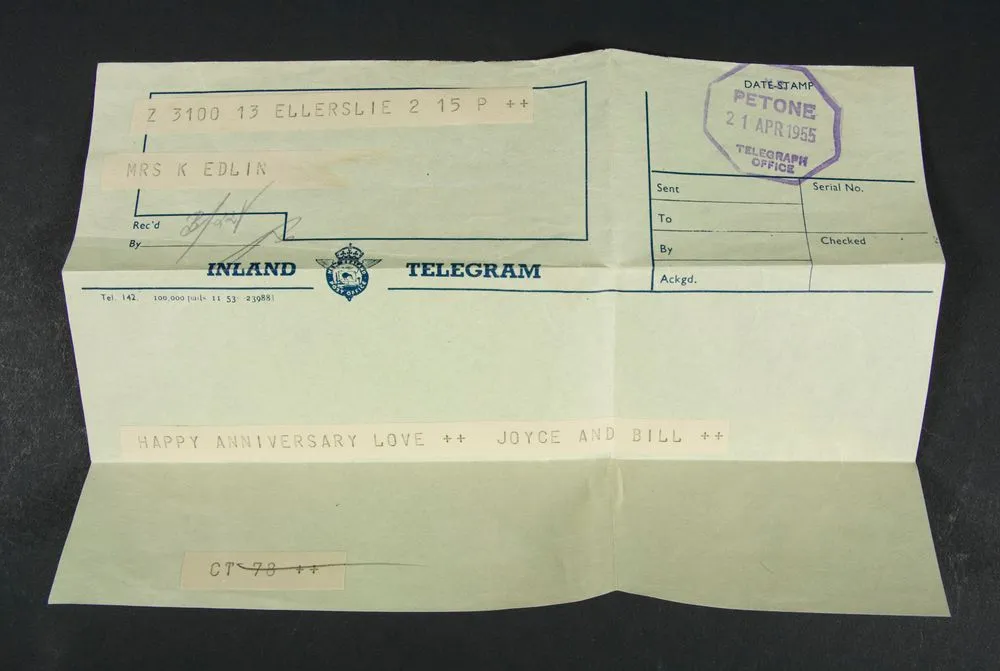 Z 3100 13 ELLERSLIE 2 15 P ++
MRS K EDLIN
Rec'd
By
DATE-STAMP
PETONE
21 APR 1955
TELEGRAPH
OFFICE
Sent
Serial No.
To
By
Checked
Ackgd.
INLAND TELEGRAM
POST OFFICE
Tel. 142. 100,000 11 53 23988
HAPPY ANNIVERSARY LOVE ++ JOYCE AND BILL ++
CT 78 ++